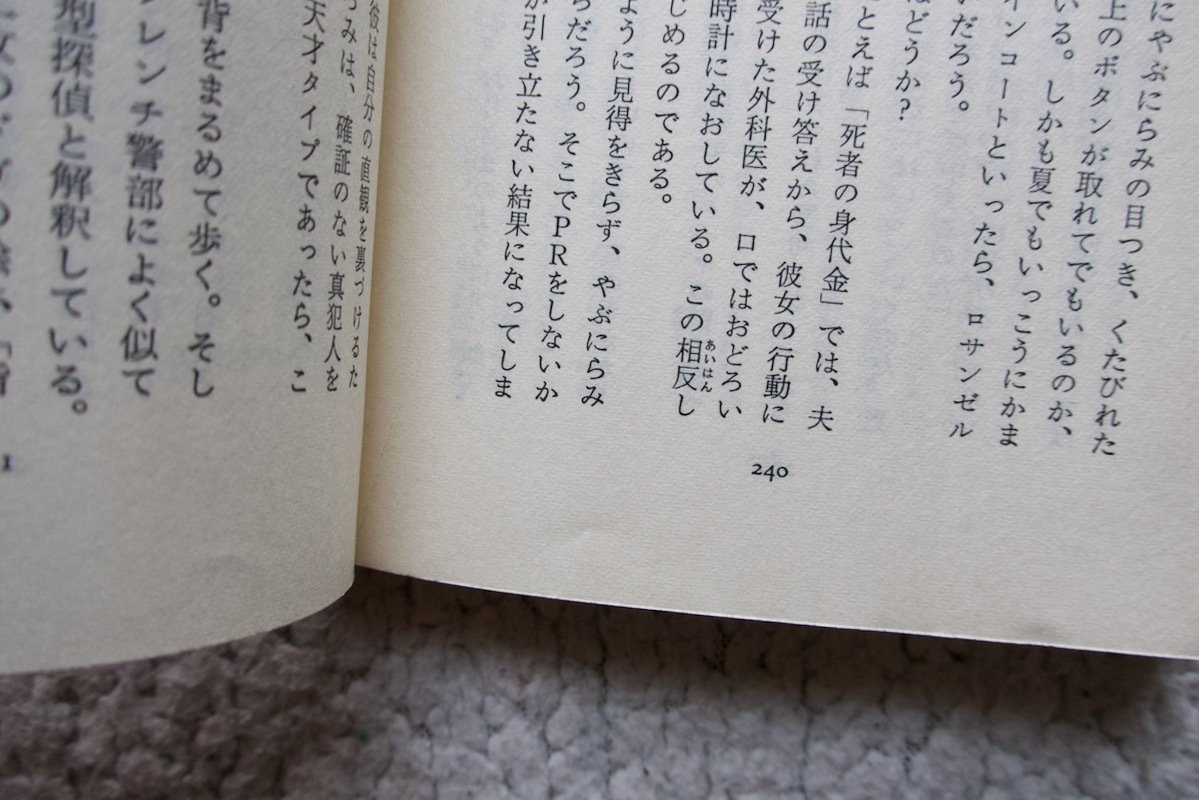 にやぶにらみの目つき、くたびれた
上のボタンが取れてでもいるのか、
いる。しかも夏でもいっこうにかま
インコートといったら、ロサンゼル
だろう。
はどうか?
とえば「死者の身代金」では、夫
話の受け答えから、彼女の行動に
受けた外科医が、口ではおどろい
時計になおしている。この相反し
あいはん
じめるのである。
ように見得をきらず、やぶにらみ
らだろう。そこでPRをしないか
が引き立たない結果になってしま
240
彼は自分の直観を裏づけるた
みは、確証のない真犯人を
天才タイプであったら、こ
背をまるめて歩く。そし
フレンチ警部によく似て
型探偵と解釈している。